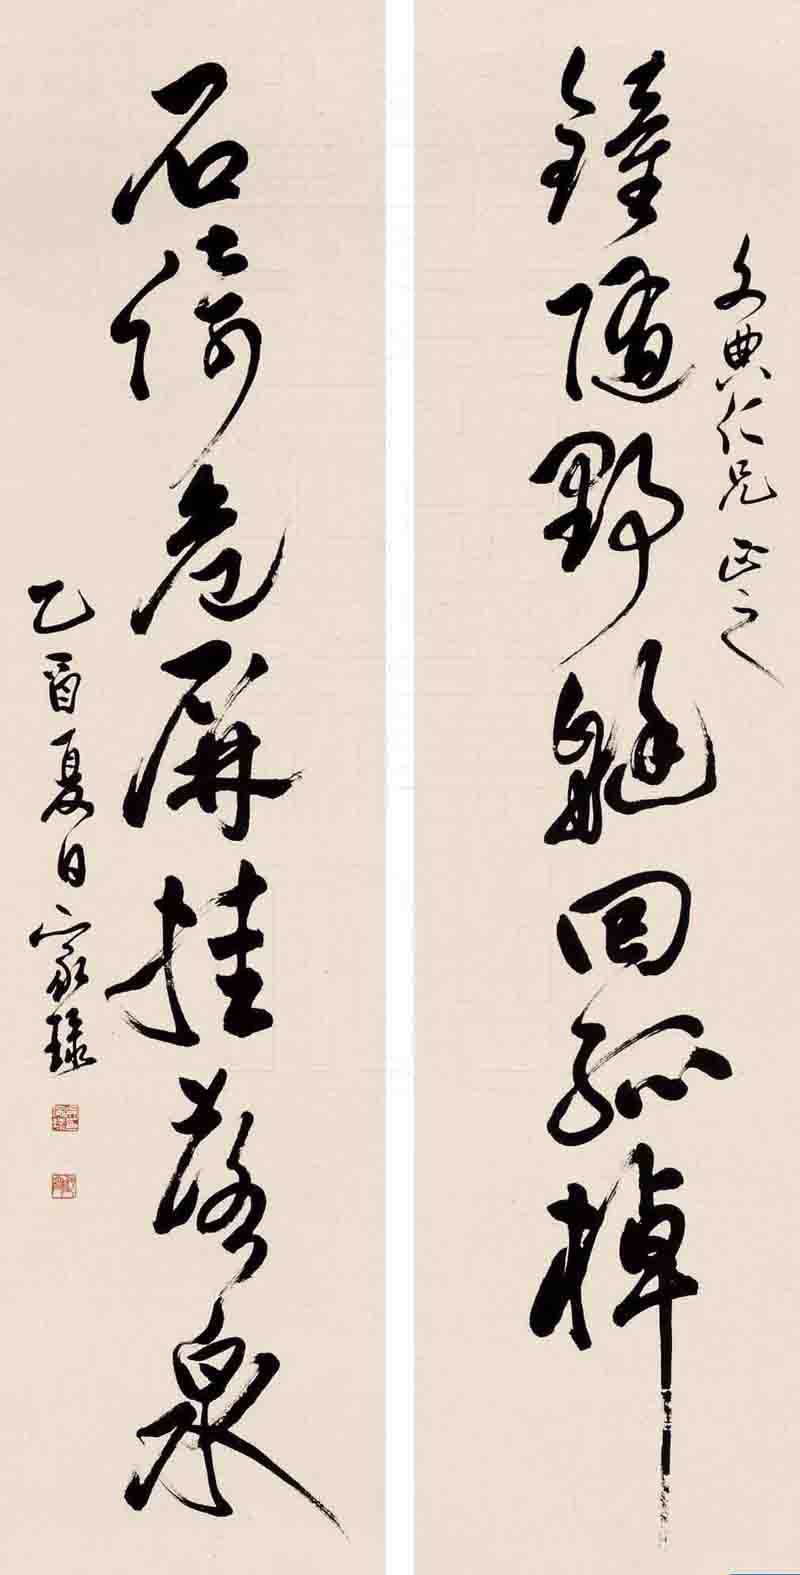 鐘随野艇回孤棹
文典仁兄正之
石倚危屏挂落泉
乙酉夏日家璟